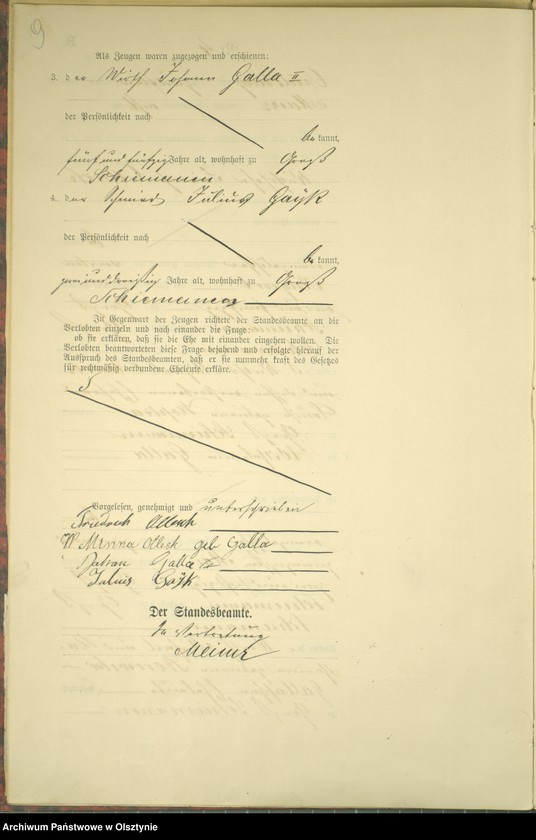 9
Als Zeugen waren zugezogen und erschienen:
3. der Wirth Johann Galla II
der Persönlichkeit nach
be kannt,
fünf und fünfzig Jahre alt, wohnhaft zu Groß
Schiemanen
4. der Schmied Julius Gayk
der Persönlichkeit nach
be kannt,
zwei und dreißig Jahre alt, wohnhaft zu Groß
Schiemanen
In Gegenwart der Zeugen richtete der Standesbeamte an die
Verlobten einzeln und nach einander die Frage:
ob sie erklären, daß sie die Ehe mit einander eingehen wollen. Die
Verlobten beantworteten diese Frage bejahend und erfolgte hierauf der
Ausspruch des Standesbeamten, daß er sie nunmehr kraft des Gesetzes
für rechtmäßig verbundene Eheleute erkläre.
Vorgelesen, genehmigt und unterschrieben
Friedrich
Minna geb Galla
Galla
Julius Gayk
Der Standesbeamte.
In Vertretung
Archiwum Państwowe w Olsztynie